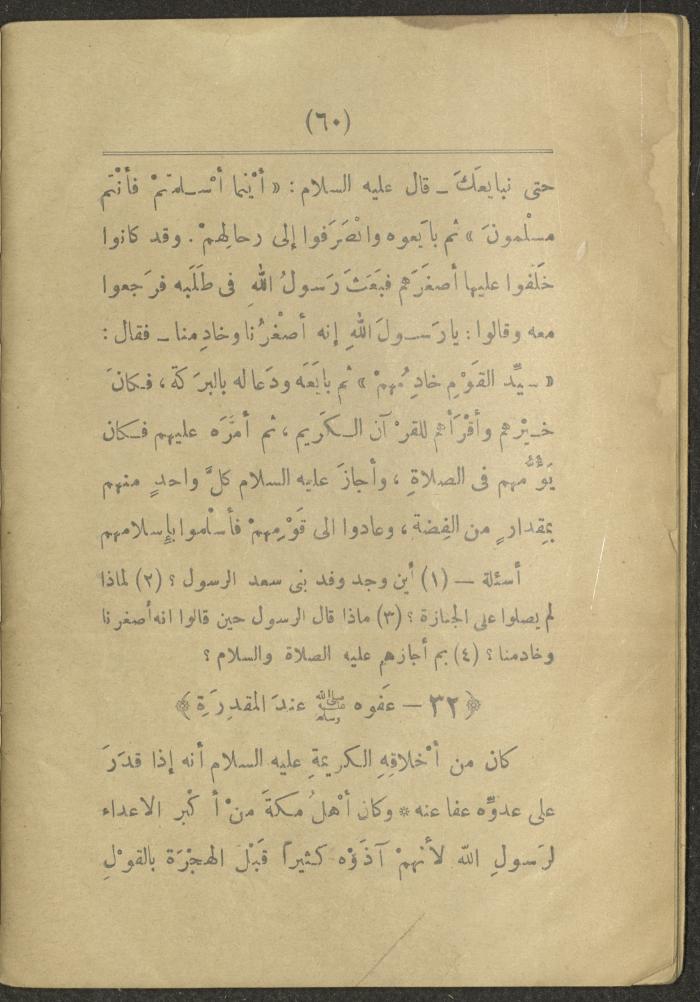 (٦٠)
حتى نبايعَكَ ــ قال عليه السلام : « أيْنما أسْـلمتمْ فأنْتم
مسْلمونَ » ثم بايَعوه وانْصَرَفوا إلى رحالِهمْ . وقد كانوا
خَلَّفوا عليها أصغَرَهم فبَعَثَ رَسولُ اللهِ فى طَلَبه فرَجعوا
معه وقالوا : يارَسـولَ اللهِ إنه أصْغرُنا وخادِمنا ــ فقال :
« سيِّد القَوْمِ خادِمُهمْ » ثم بايَعَه ودَعا له بالبرَكة ، فـكانَ
خـيْرهم وأقْرَأهم للقرْآن الـكَريم ، ثم أمَّرَه عليهم فـكان
يَؤُمُّهم فى الصلاةِ ، وأجازَ عليه السلام كلَّ واحدٍ منهم
بمِقدارٍ من الفِضة ، وعادوا الى قَوْمِهمْ فأسْلموا بإِسلامهم
أسئلة — (١) أين وجد وفد بنى سعد الرسول ؟ (٢) لماذا
لم يصلوا على الجنازة ؟ (٣) ماذا قال الرسول حين قالوا انه أصغرنا
وخادمنا ؟ (٤) بم أجازهم عليه الصلاة والسلام ؟
﴿ ٣٢ — عَفوه ﷺ عندَ المقدِرَةِ ﴾
كان من أخْلاقِهِ الـكريمةِ عليه السلام أنه إذا قدَرَ
على عدوِّه عفا عنه * وكان أهْلُ مـكةَ منْ أ كْبر الاعداء
لرَسولِ اللّه لأنهمْ آذَوْه كـثيراً قَبْلَ الهجْرَة بالقوْلِ